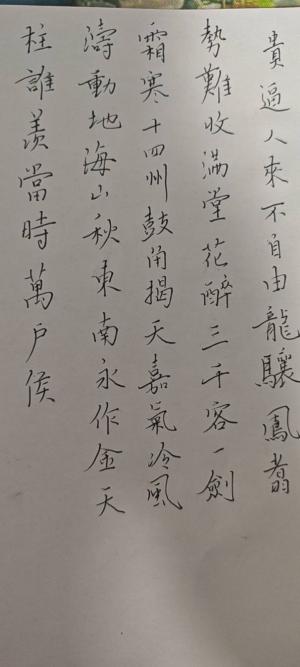 貴逼人來不自由龍驤鳳翥
勢難收滿堂花醉三千客一劍
霜寒十四州鼓角揭天嘉氣冷風
濤動地海山秋東南永作金天
柱誰羨當時萬戶侯